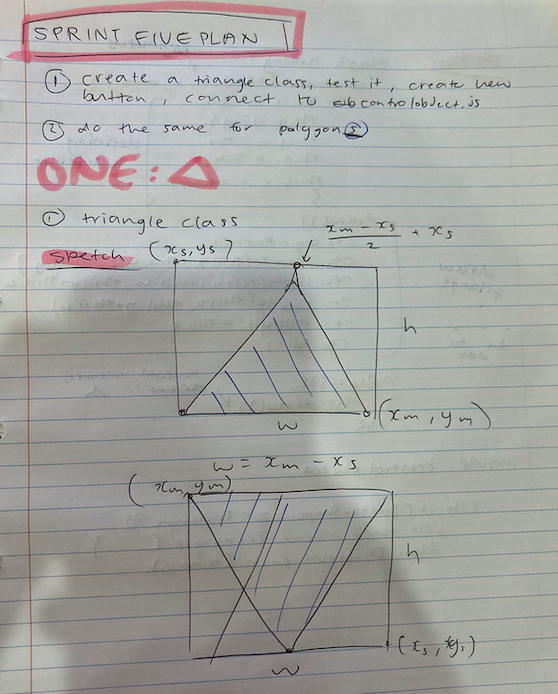 SPRINT FIVE PLAN
① create a triangle class, test it, create new
button, connect to
② do the same for polygons
ONE: △
① triangle class
sketch (xs, ys) xm - xs / 2 + xs
h
w (xm, ym)
w = xm - xs
(xm, ym)
h
(xs, ys)
w